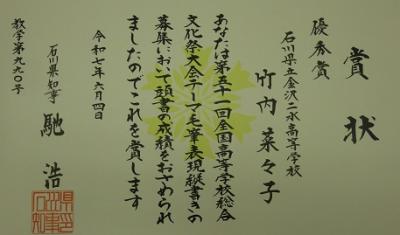 賞状
優秀賞
石川県立金沢二水高等学校
竹内菜々子
あなたは第五十一回全国高等学校総合
文化祭大会テーマ毛筆表現縦書きの
募集において頭書の成績をおさめられ
ましたのでこれを賞します
令和七年六月四日
石川県知事 馳浩
教学第九九〇号